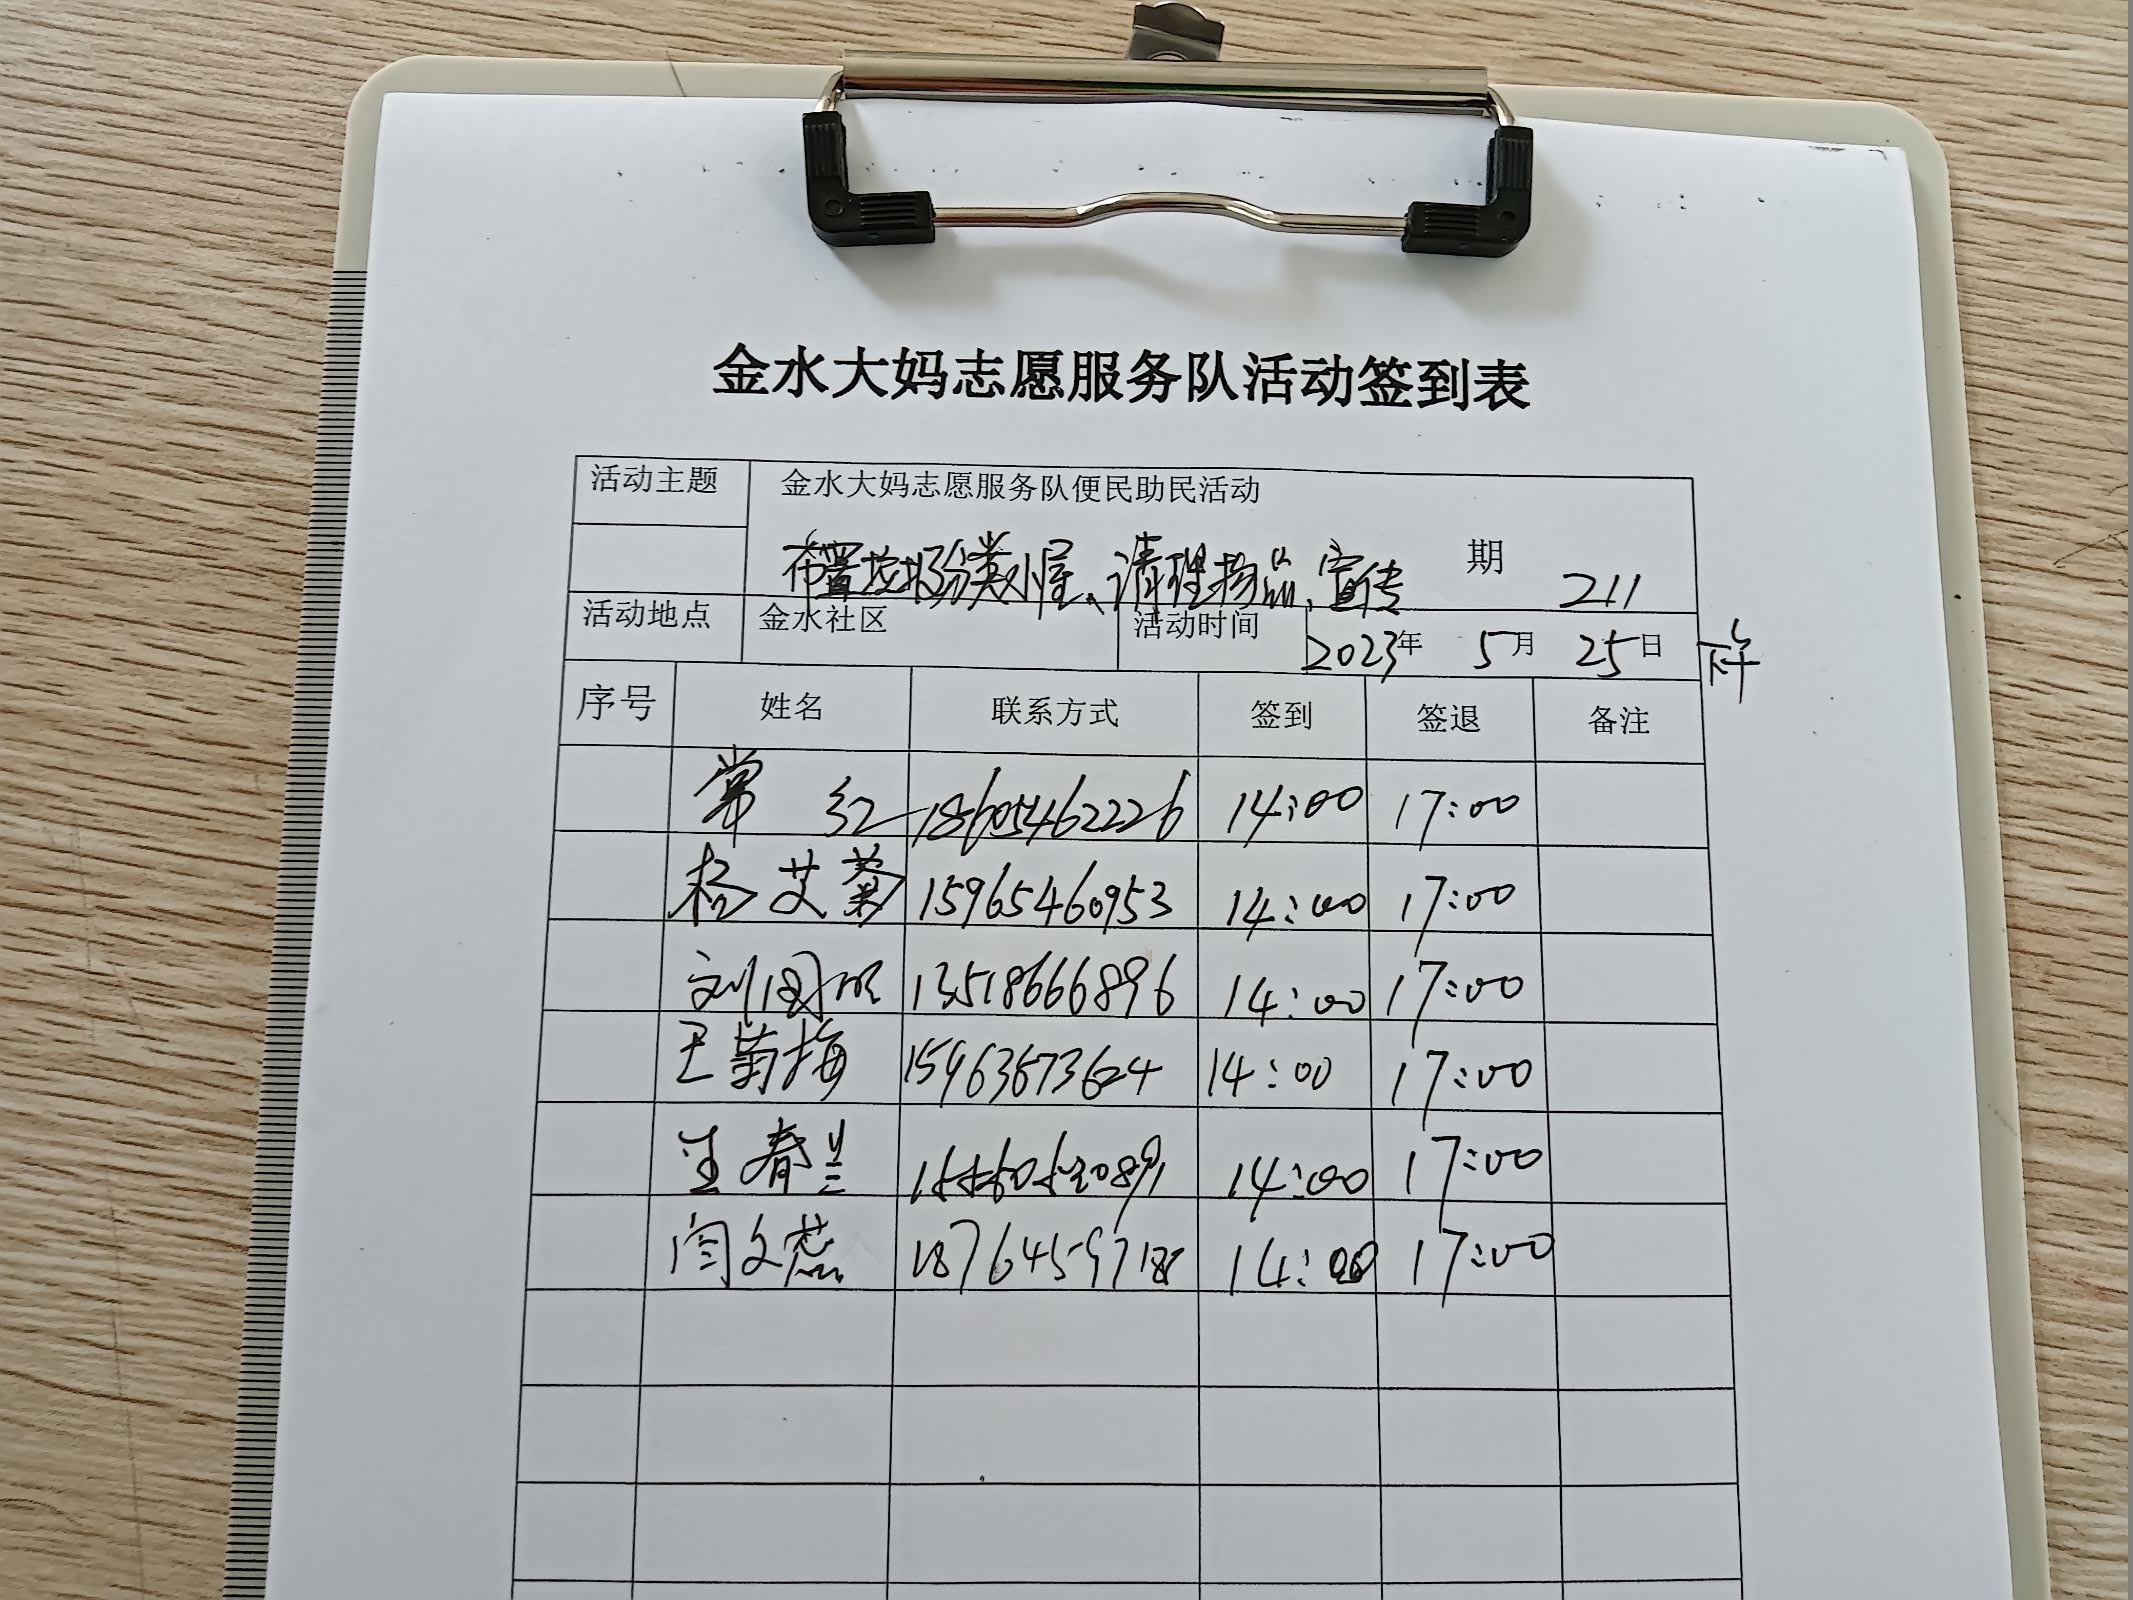 金水大妈志愿服务队活动签到表
活动主题 金水大妈志愿服务队便民助民活动
布置垃圾分类小屋、清理物品、宣传 期 211
活动地点 金水社区 活动时间 2023年 5月 25日 下午
序号 姓名 联系方式 签到 签退 备注
常红 18605462226 14:00 17:00
杨艾菊 15965460953 14:00 17:00
刘国明 13518666896 14:00 17:00
王菊梅 15963673624 14:00 17:00
生春兰 14:00 17:00
闫文燕 14:00 17:00